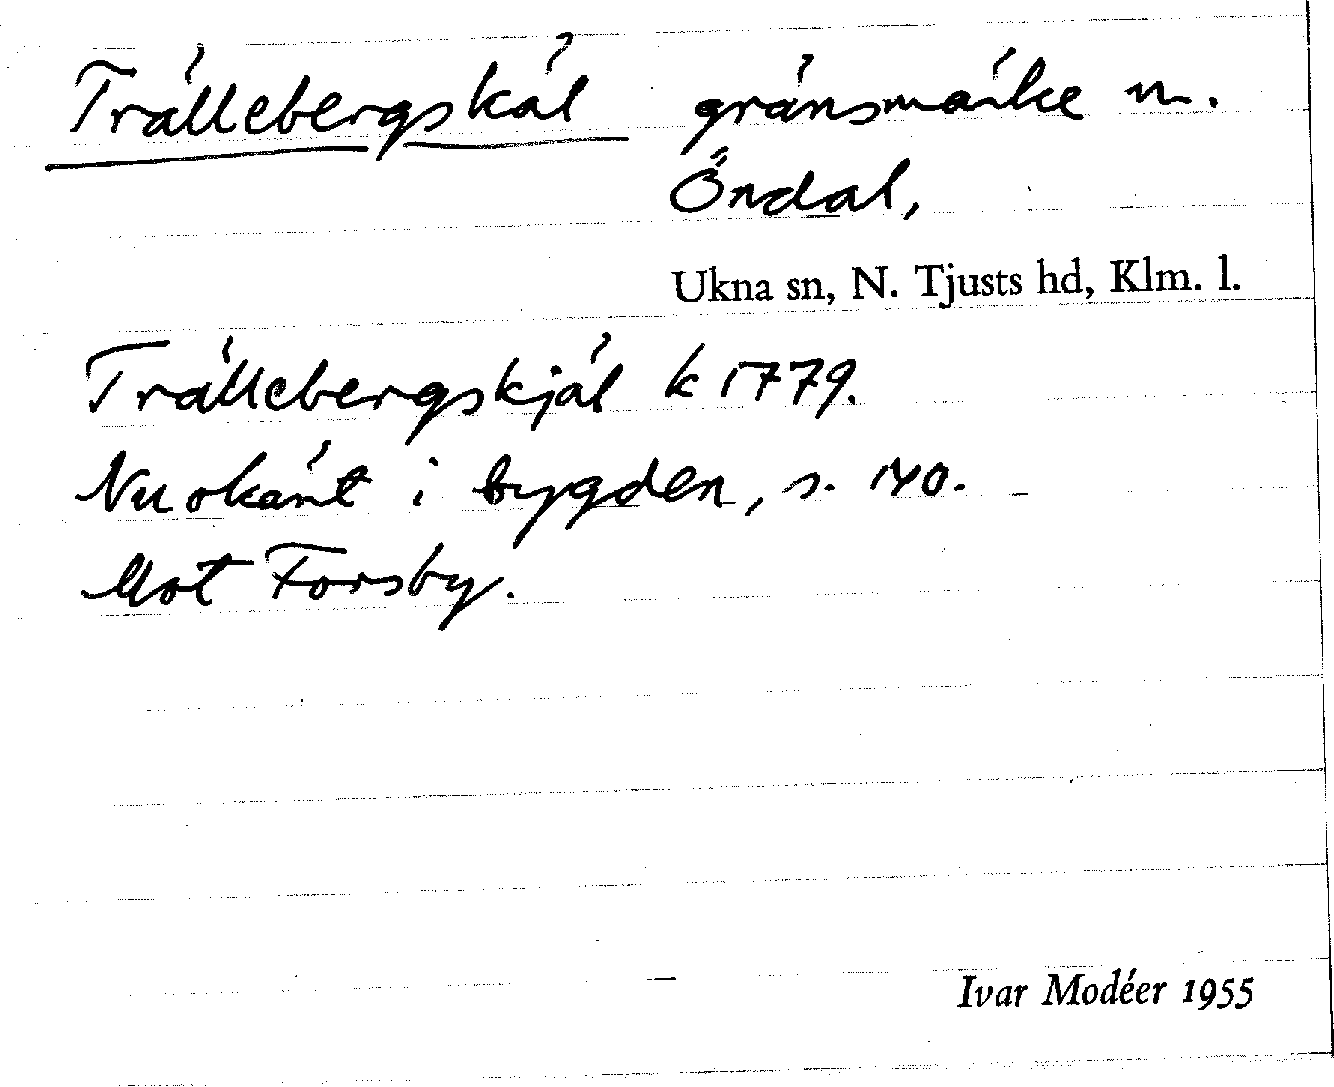 Trällebergskäl gränsmärke m.
Öndal,
Ukna sn, N. Tjusts hd, Klm. l.
Trällebergskjäl k 1779.
Nu okänt i bygden, s. 140.
Mot Forsby.
Ivar Modéer 1955